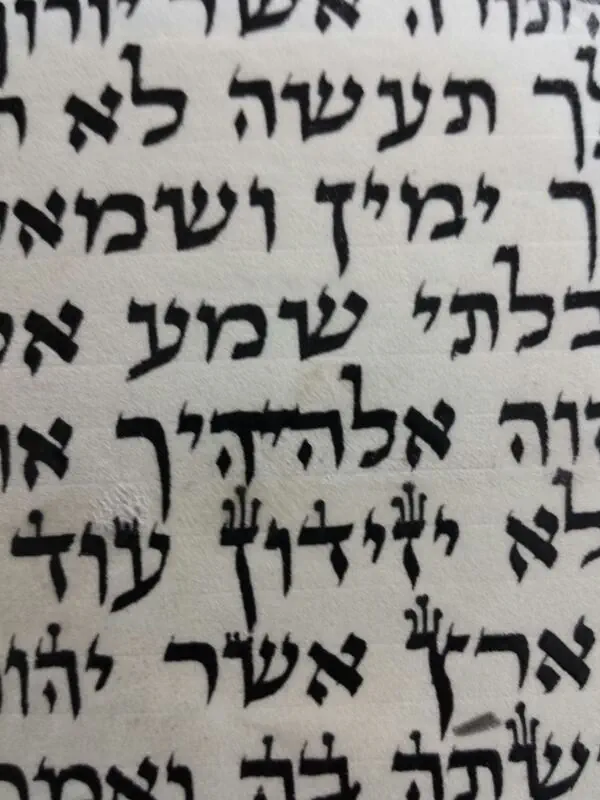 תורה אשר יורוך
לך תעשה לא
ך ימין ושמא
בלתי שמע א
הוה אלהיך או
לא יזידון עוד
ארץ אשר יהו
שתה בה ואמר